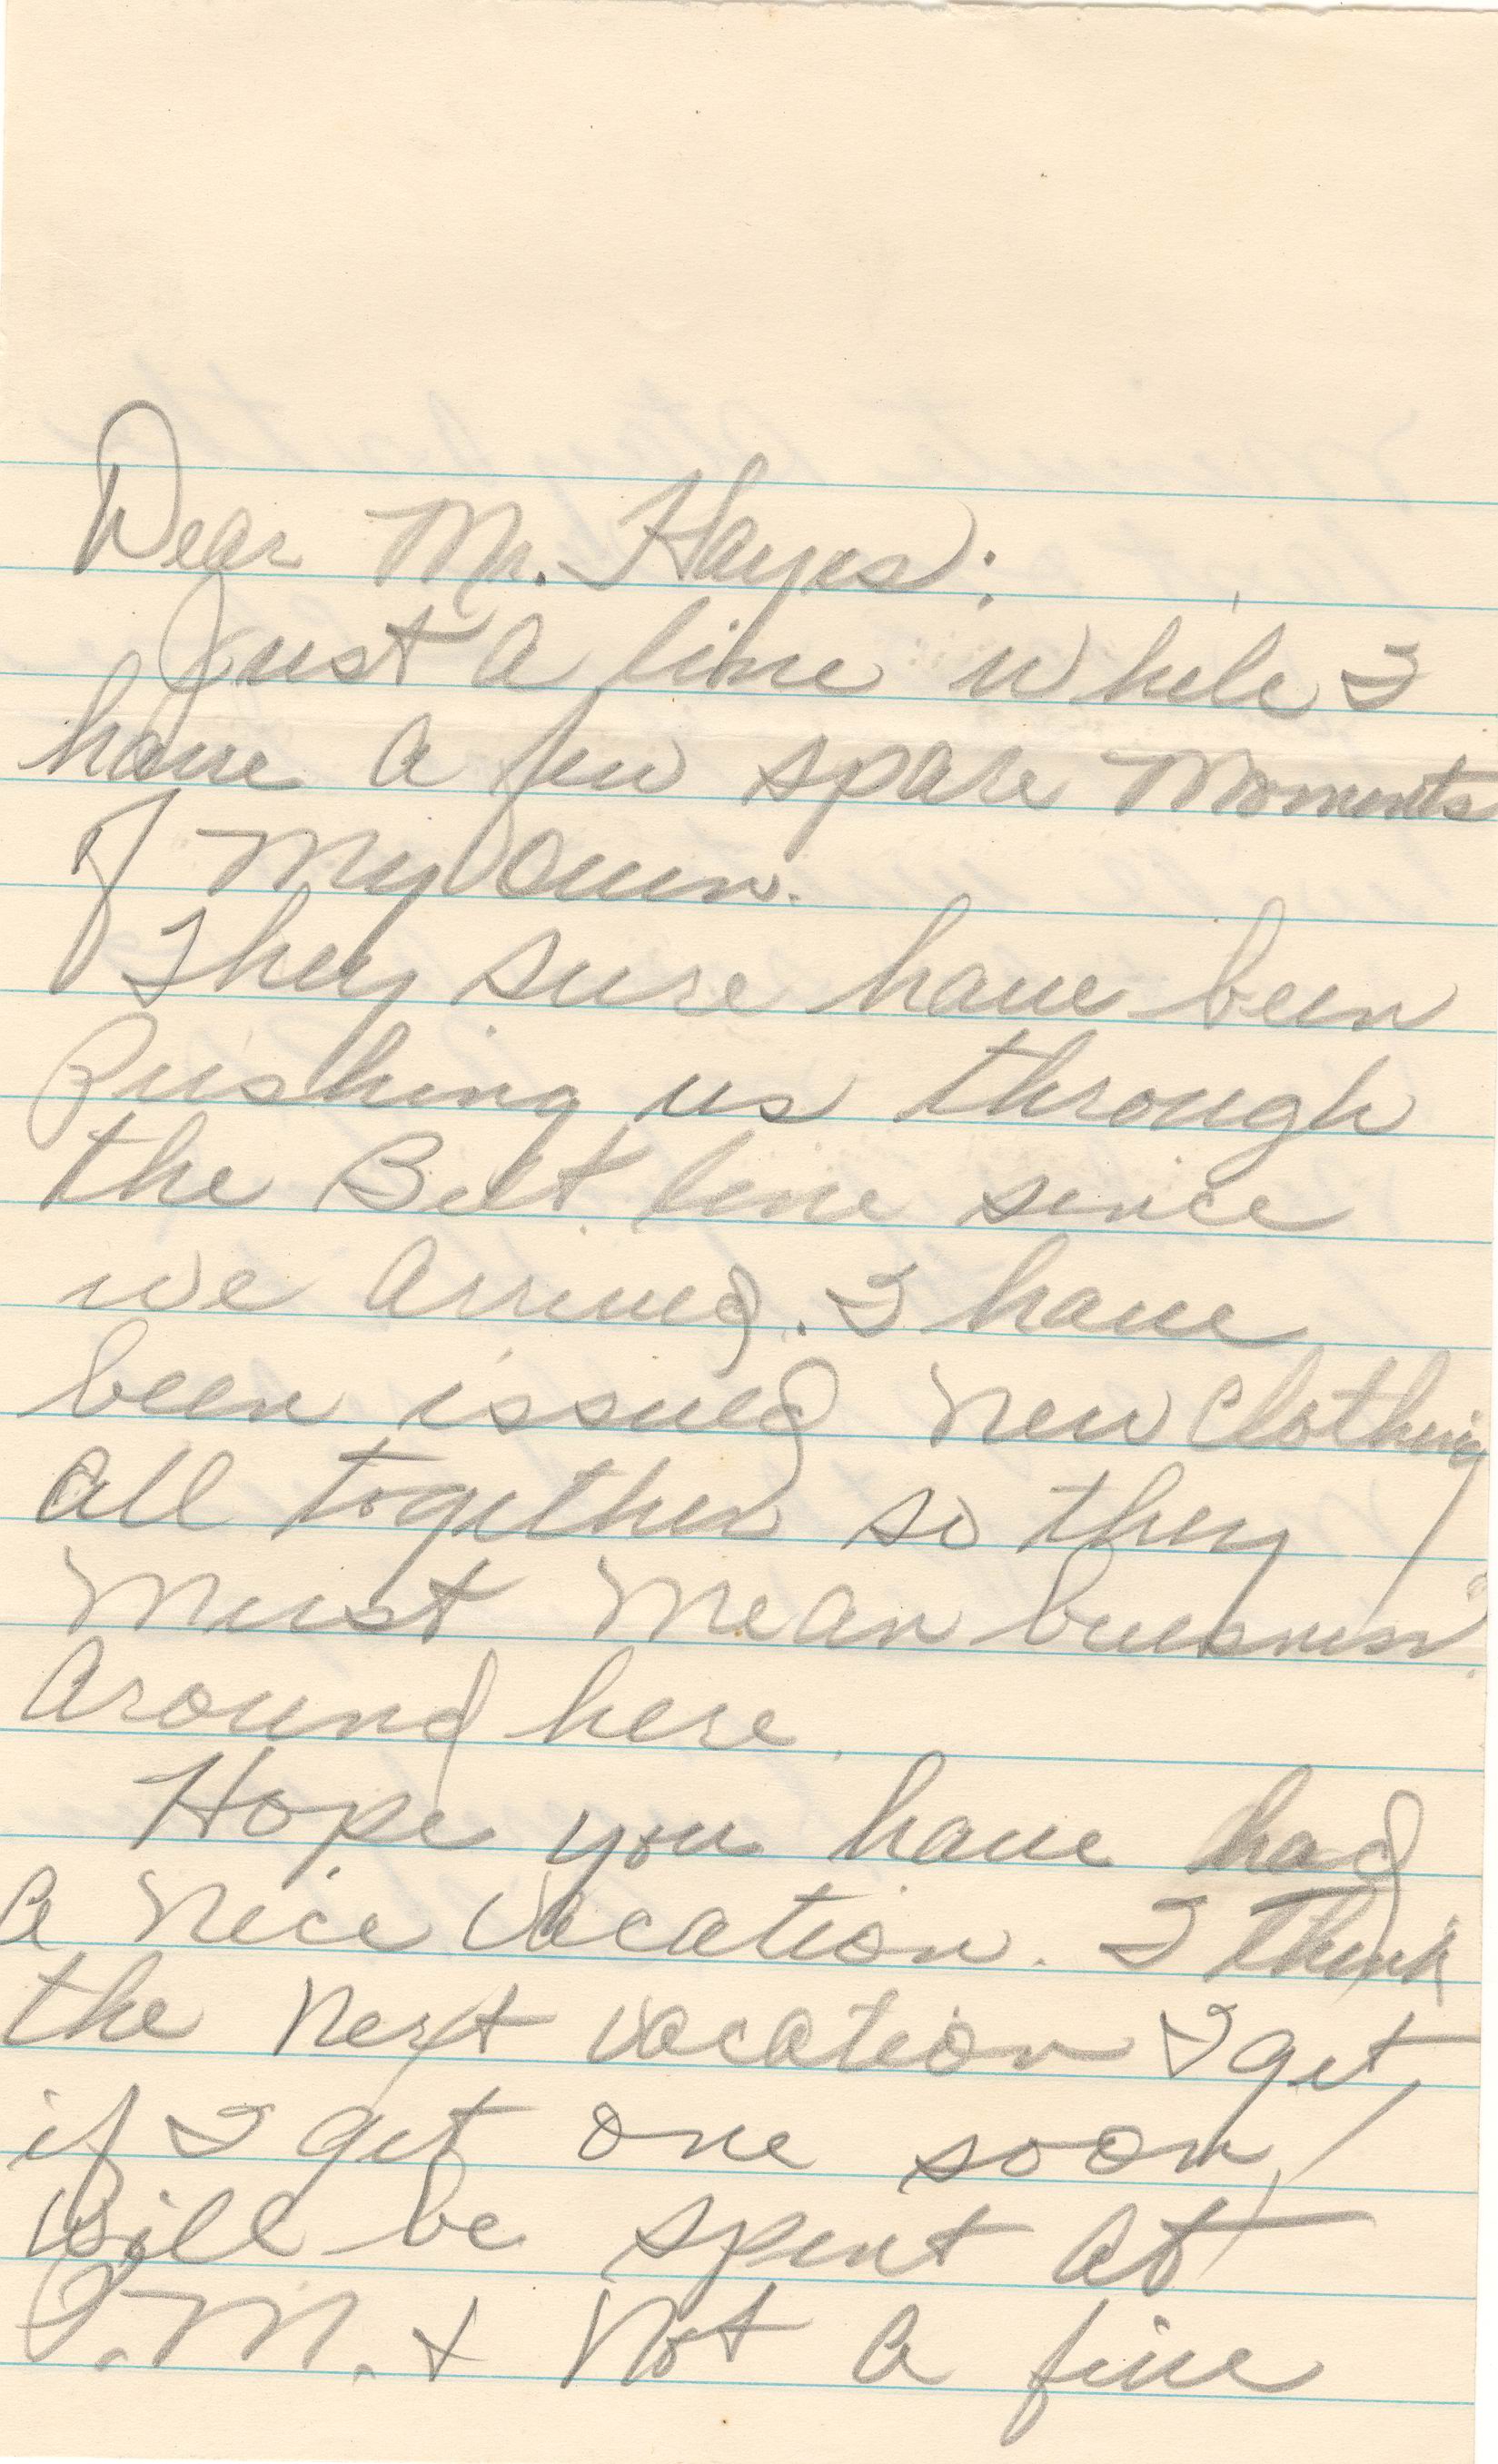 Dear Mr. Hayes:
Just a line while I
have a few spare moments
of my own.
They sure have been
Pushing us through
the Belt line since
we arrived. I have
been issued new clothing
all together so they
must mean business
around here.
Hope you have had
a nice vacation. I think
the next vacation I get,
if I get one soon,
will be spent at
P.M. & not a five